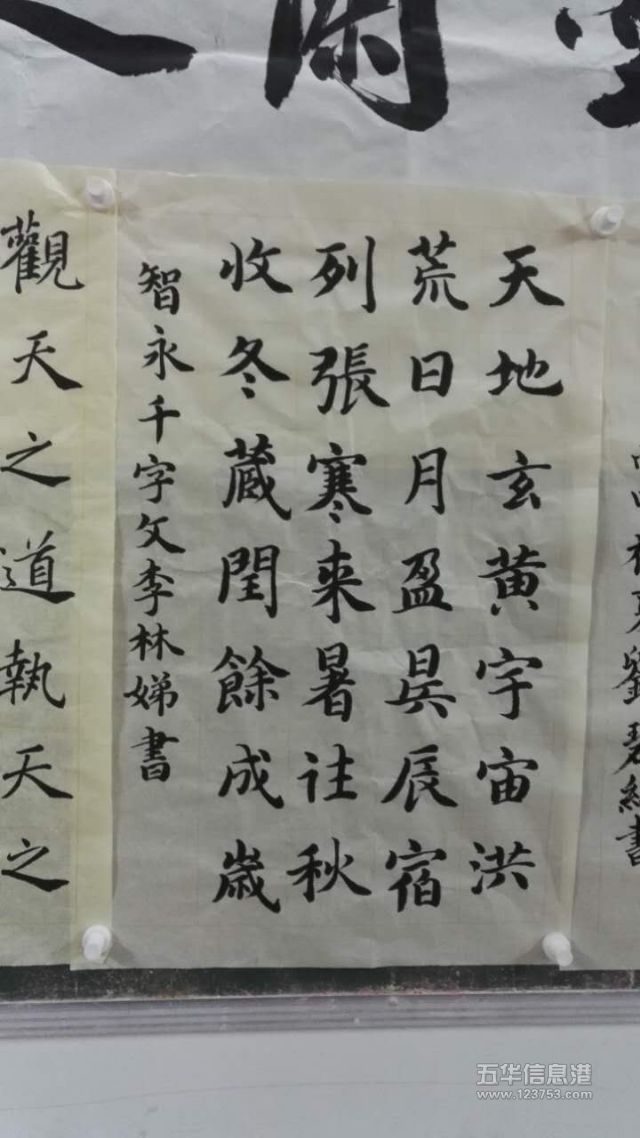 劉碧 書
天地玄黄宇宙洪
荒日月盈昃辰宿
列張寒来暑往秋
收冬蔵閏餘成歲
智永千字文李林娣書
觀天之道執天之
五华信息港
www.123753.com